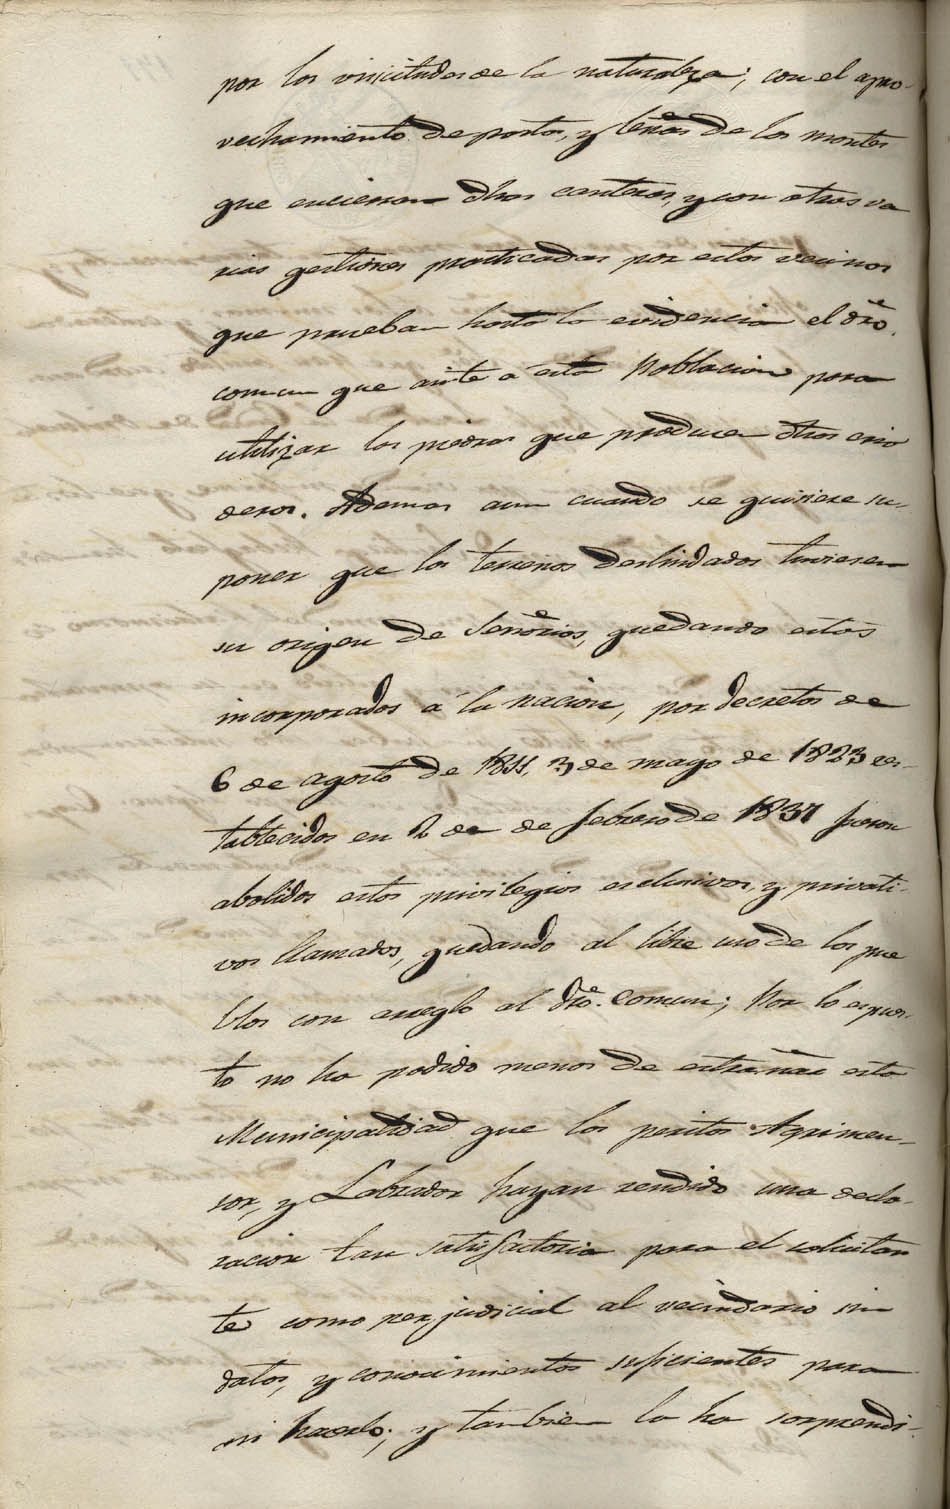 por los visicitudes de la naturaleza; con el apro-
vechamiento de pastos, y leñas de los montes
que encierran dhas canteras, y con otras va
rias gestiones practicadas por estos vecinos
que prueban hasta la evidencia el dro.
comun que asite á esta Poblacion para
utilizar las piedras que producen dhos cria
deros. Ademas aun cuando se quisiere su-
poner que los terrenos deslindados tuviesen
su origen de Señorios, quedando estos
incorporados á la nacion, por decretos de
6 de agosto de 1811, 3 de mayo de 1823 res-
tablecidos en 2 de de febrero de 1837 fueron
abolidos estos privilegios esclusivos, y privati-
vos llamados, quedando al libre uso de los pue
blos con arreglo al dro. comun; Por lo espues-
to no ha podido menos de estrañar esta
Municipalidad que los peritos Agrimen-
sor, y Labrador hayan rendido una decla-
racion tan satisfactoria para el solicitan
te como perjudicial al vecindario sin
datos, y conocimientos suficientes para
si hacerlo; y tambien la ha sorprendi-